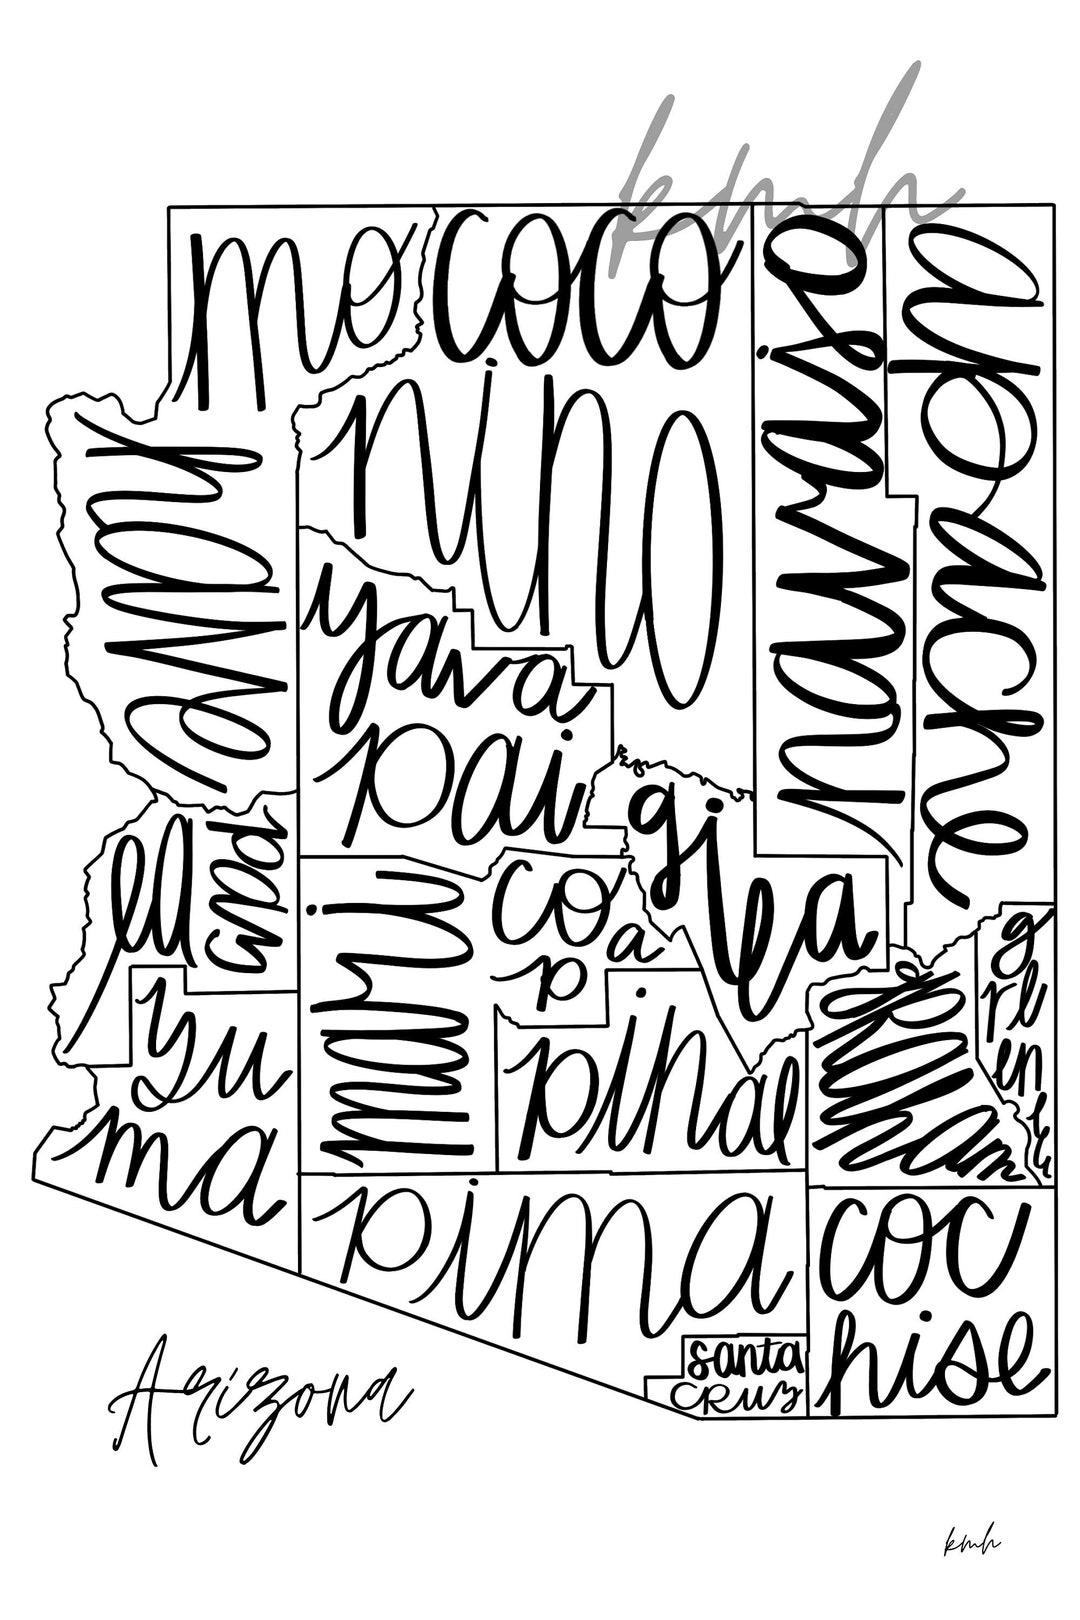 kmh
mo
have
coco
nino
navajo
apache
yava
pai
gila
la
paz
mari
co
p a
yu
ma
pinal
graham
g
re
en
lee
pima
coc
hise
santa
CRUZ
Arizona
kmh